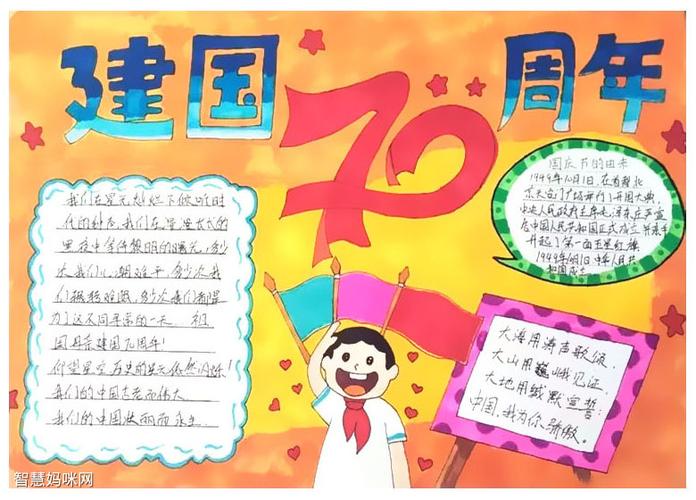 建国70周年
我们在星光灿烂下倾听时
代的钟声，我们在漫漫长长的
黑夜中等待黎明的曙光，多少
次我们心潮难平，多少次我
们
多少次我们都是
为了这不同寻常的一天。祖
国母亲建国70周年！
仰望星空，历史的星光依然闪烁！
我们的中国古老而伟大
我们的中国壮丽而永生
国庆节的由来
1949年10月1日，在首都北
京天安门广场举行了开国大典，
中央人民政府主席毛泽东庄严宣
告中国人民共和国正式成立并亲手
升起了第一面五星红旗
1949年10月1日中华人民共
和国成立
大海用涛声歌颂，
大山用巍峨见证，
大地用缄默宣誓：
中国，我为你骄傲。
智慧妈咪网